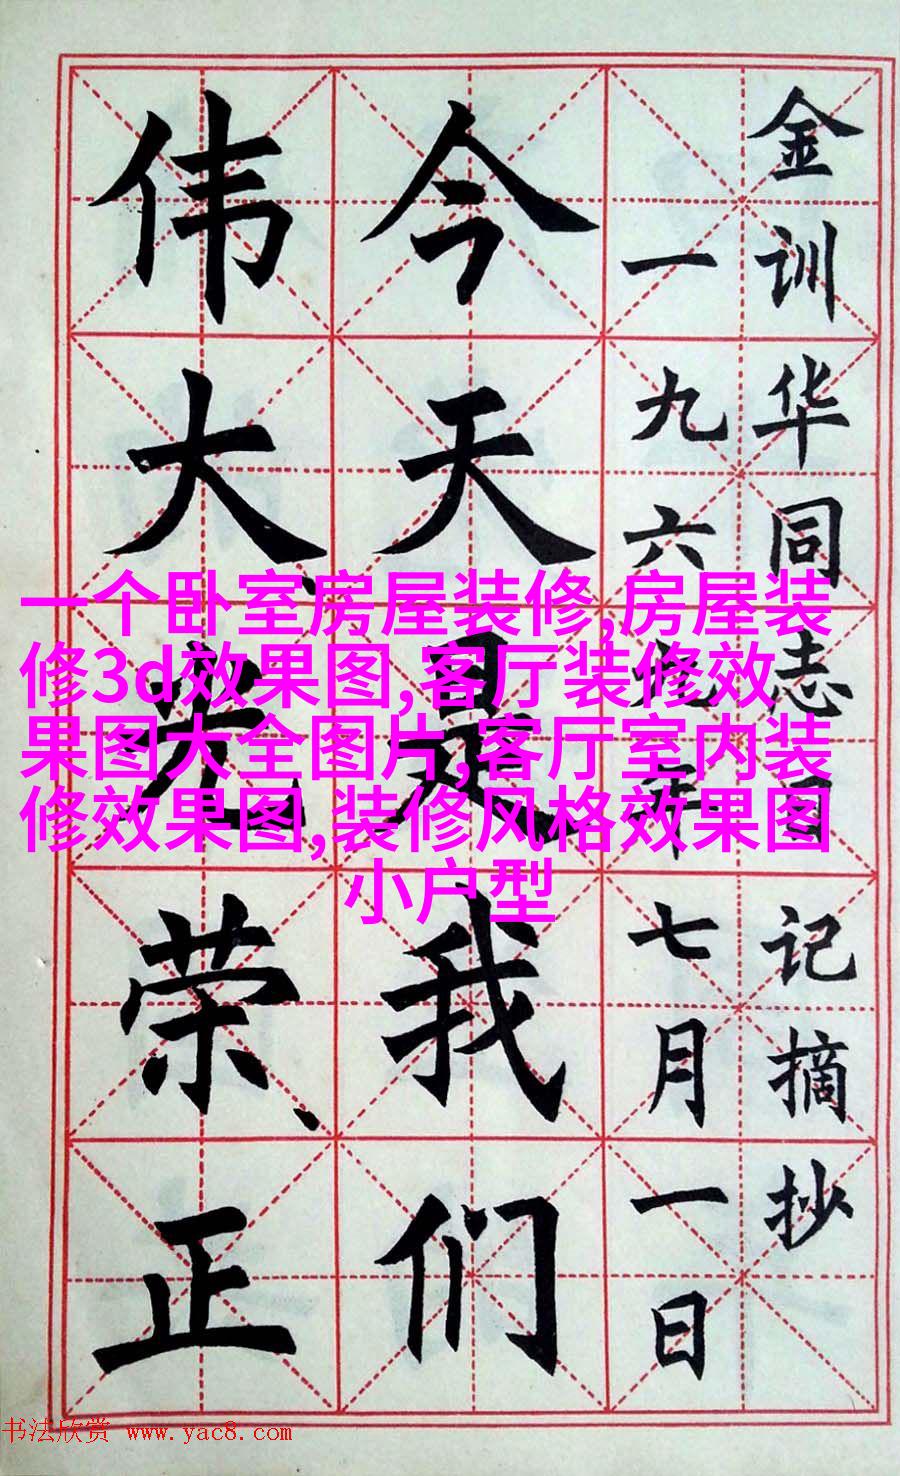 金训华同志日记摘抄
一九六九年七月一日
今天是我们
伟大、光荣、正
一个卧室房屋装修,房屋装
修3d效果图,客厅装修效
果图大全图片,客厅室内装
修效果图,装修风格效果图
小户型
书法欣赏 www.yac8.com